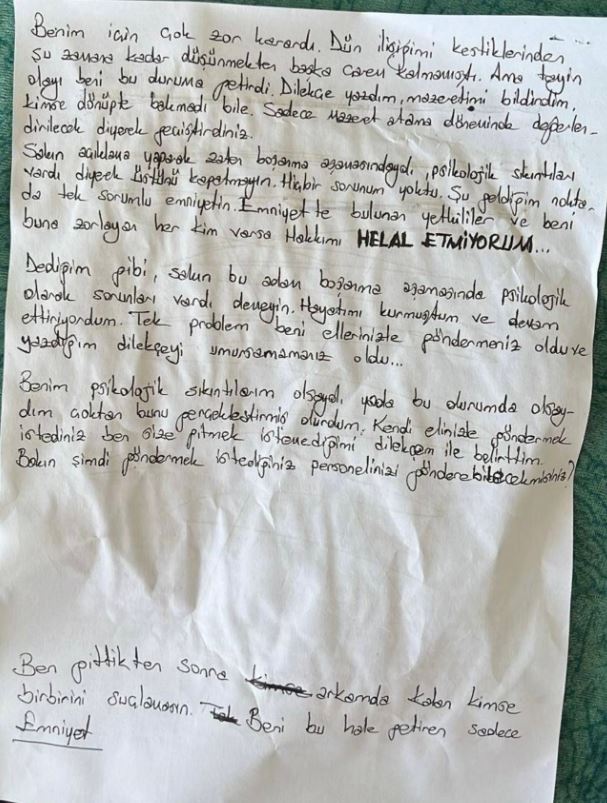 Benim için çok zor karardı. Dün ilişiğimi kestiklerinden
şu zamana kadar düşünmekten başka çarem kalmamıştı. Ama tayin
olayı beni bu duruma getirdi. Dilekçe yazdım, mazeretimi bildirdim,
kimse dönüpte bakmadı bile. Sadece mazeret atama döneminde değerlen-
dirilecek diyerek geçiştirdiniz.
Sakın açıklama yaparak zaten boşanma aşamasındaydı, psikolojik sıkıntıları
vardı diyerek üstünü kapatmayın. Hiçbir sorunum yoktu. Şu geldiğim nokta-
da tek sorumlu emniyetin. Emniyette bulunan yetkililer ve beni
buna zorlayan her kim varsa Hakkımı HELAL ETMİYORUM...
Dediğim gibi, sakın bu adam boşanma aşamasında psikolojik
olarak sorunları vardı demeyin. Hayatımı kurmuştum ve devam
ettiriyordum. Tek problem beni ellerinizle göndermeniz oldu ve
yazdığım dilekçeyi umursamamanız oldu...
Benim psikolojik sıkıntılarım olsaydı, yada bu durumda olsay-
dım çoktan bunu gerçekleştirmiş olurdum. Kendi elinizle göndermek
istediniz ben size gitmek istemediğimi dilekçem ile belirttim.
Bakın şimdi göndermek istediğiniz personelinizi gönderebilecekmisiniz?
Ben gittikten sonra kimse arkamda kalan kimse
birbirini suçlamasın. Tek Beni bu hale getiren sadece
Emniyet